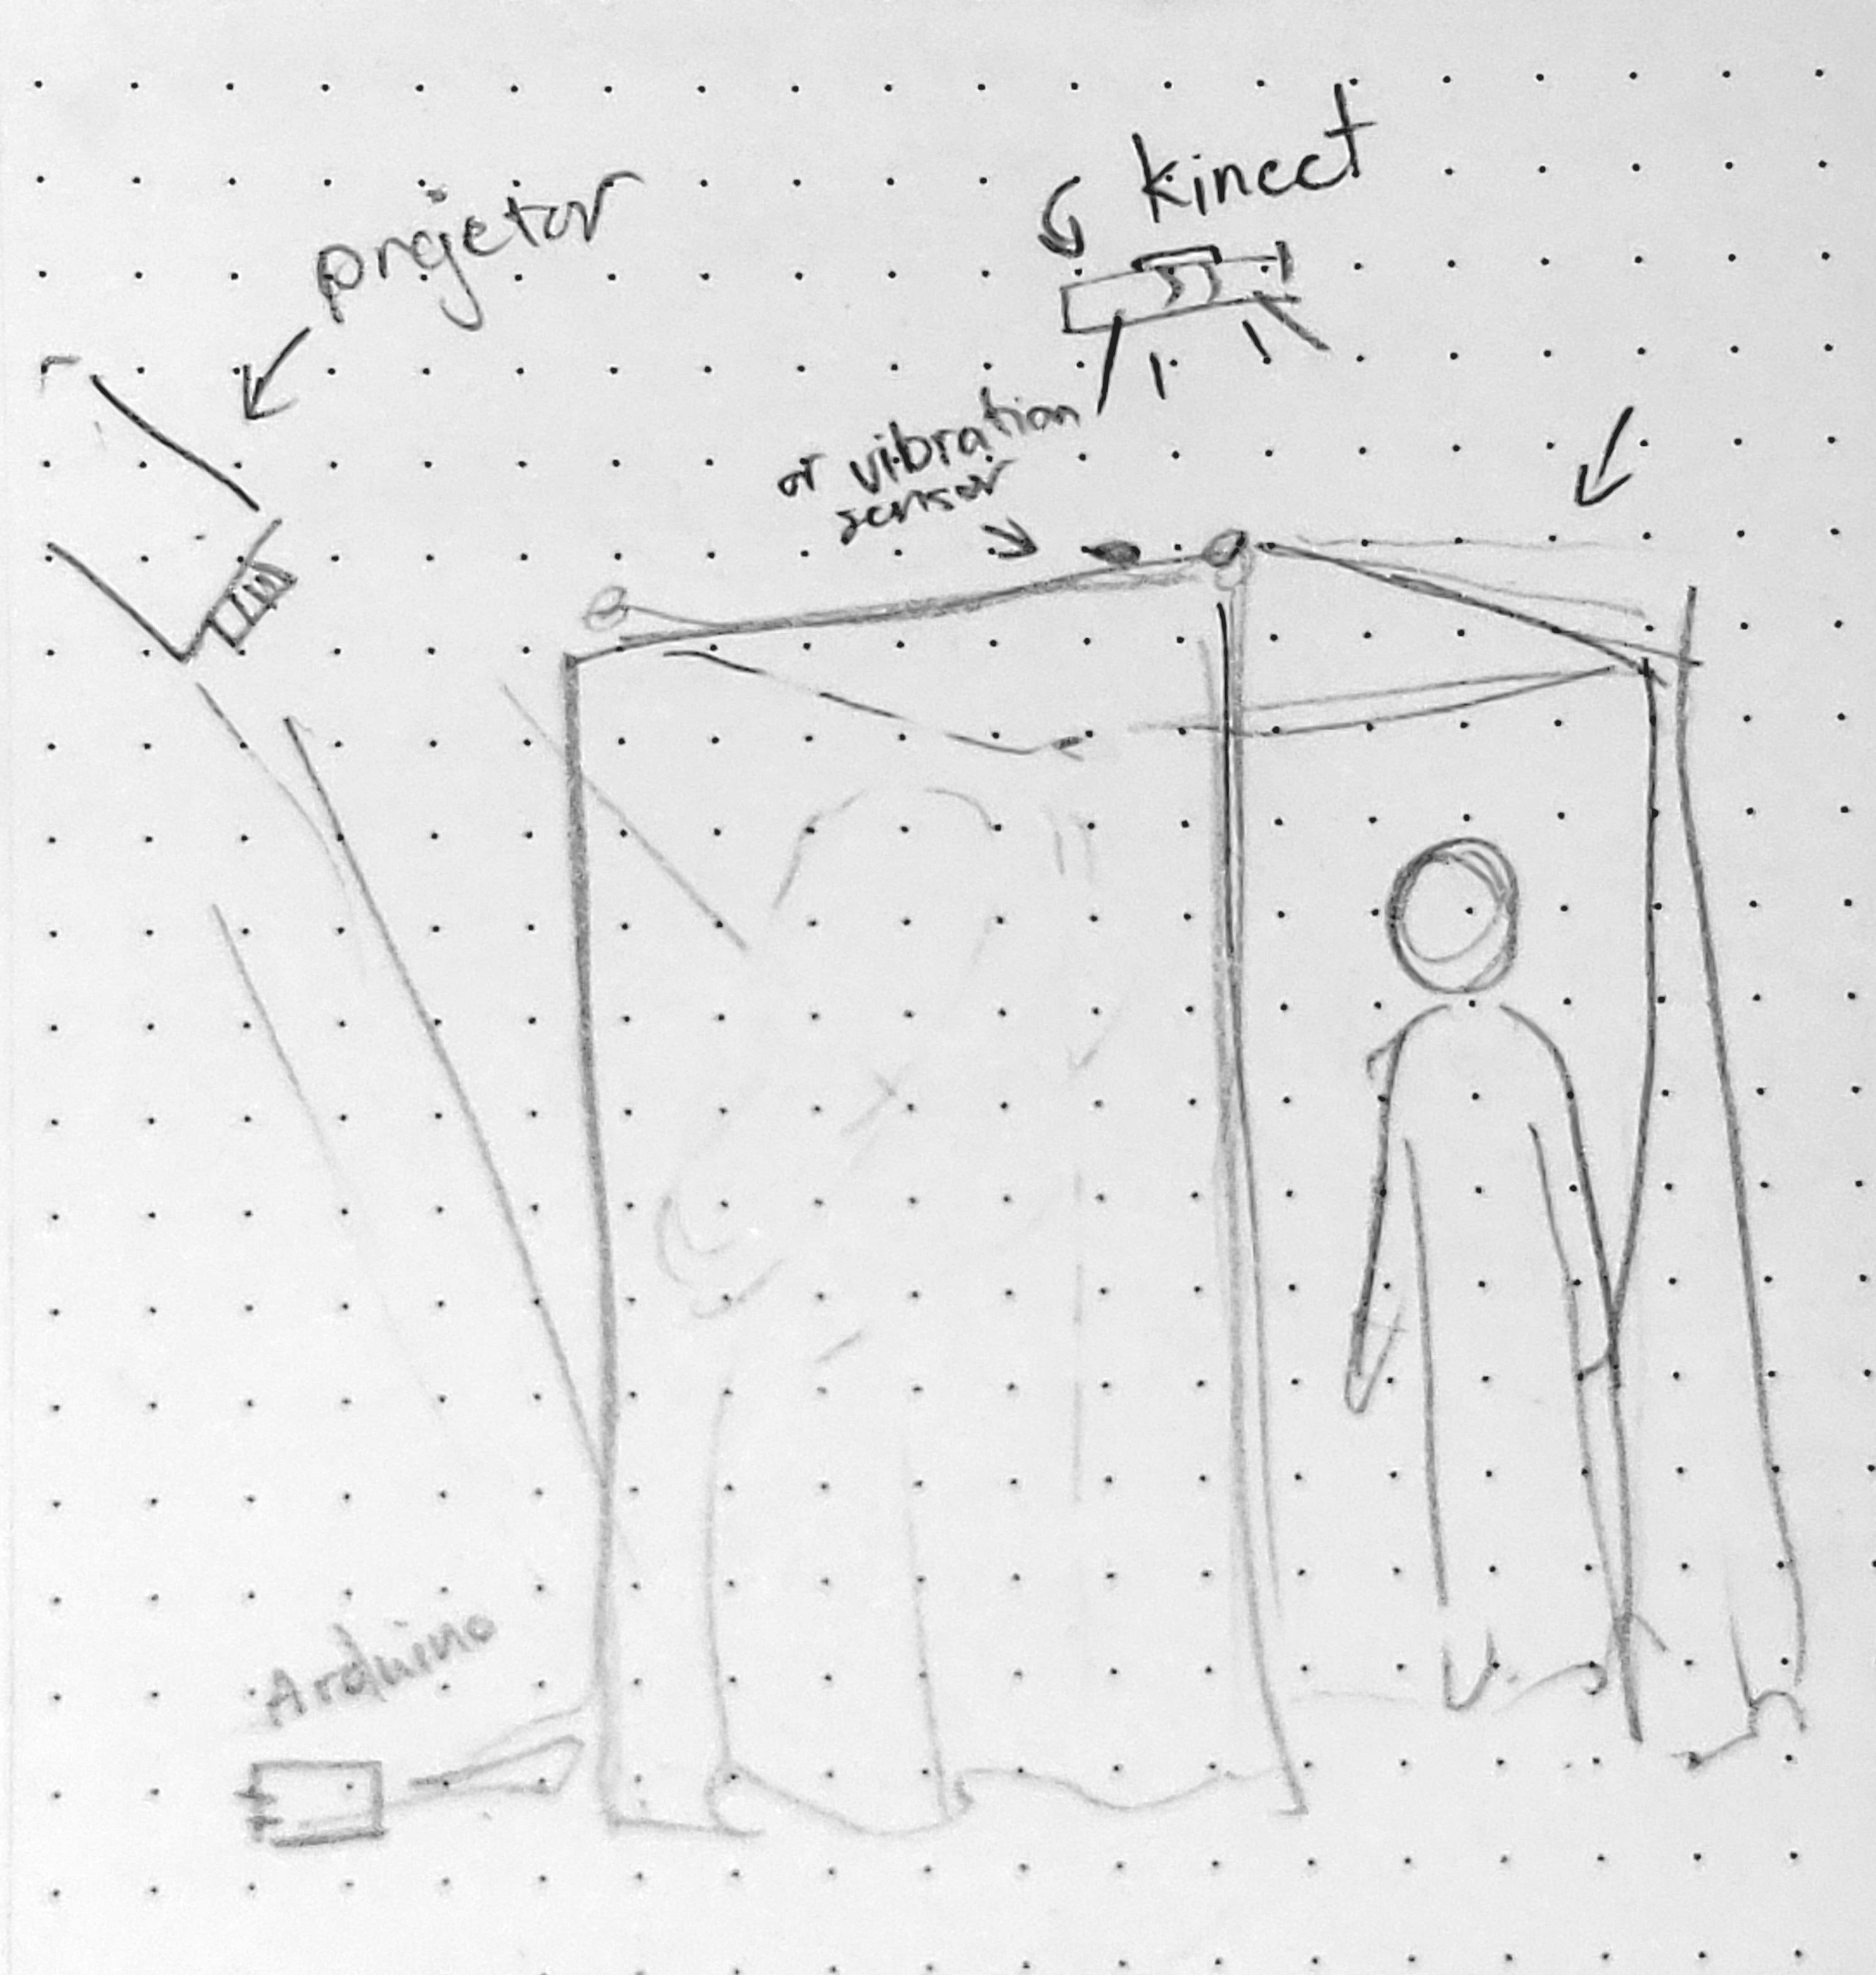 projetor
kinect
or vibration
sensor
Arduino